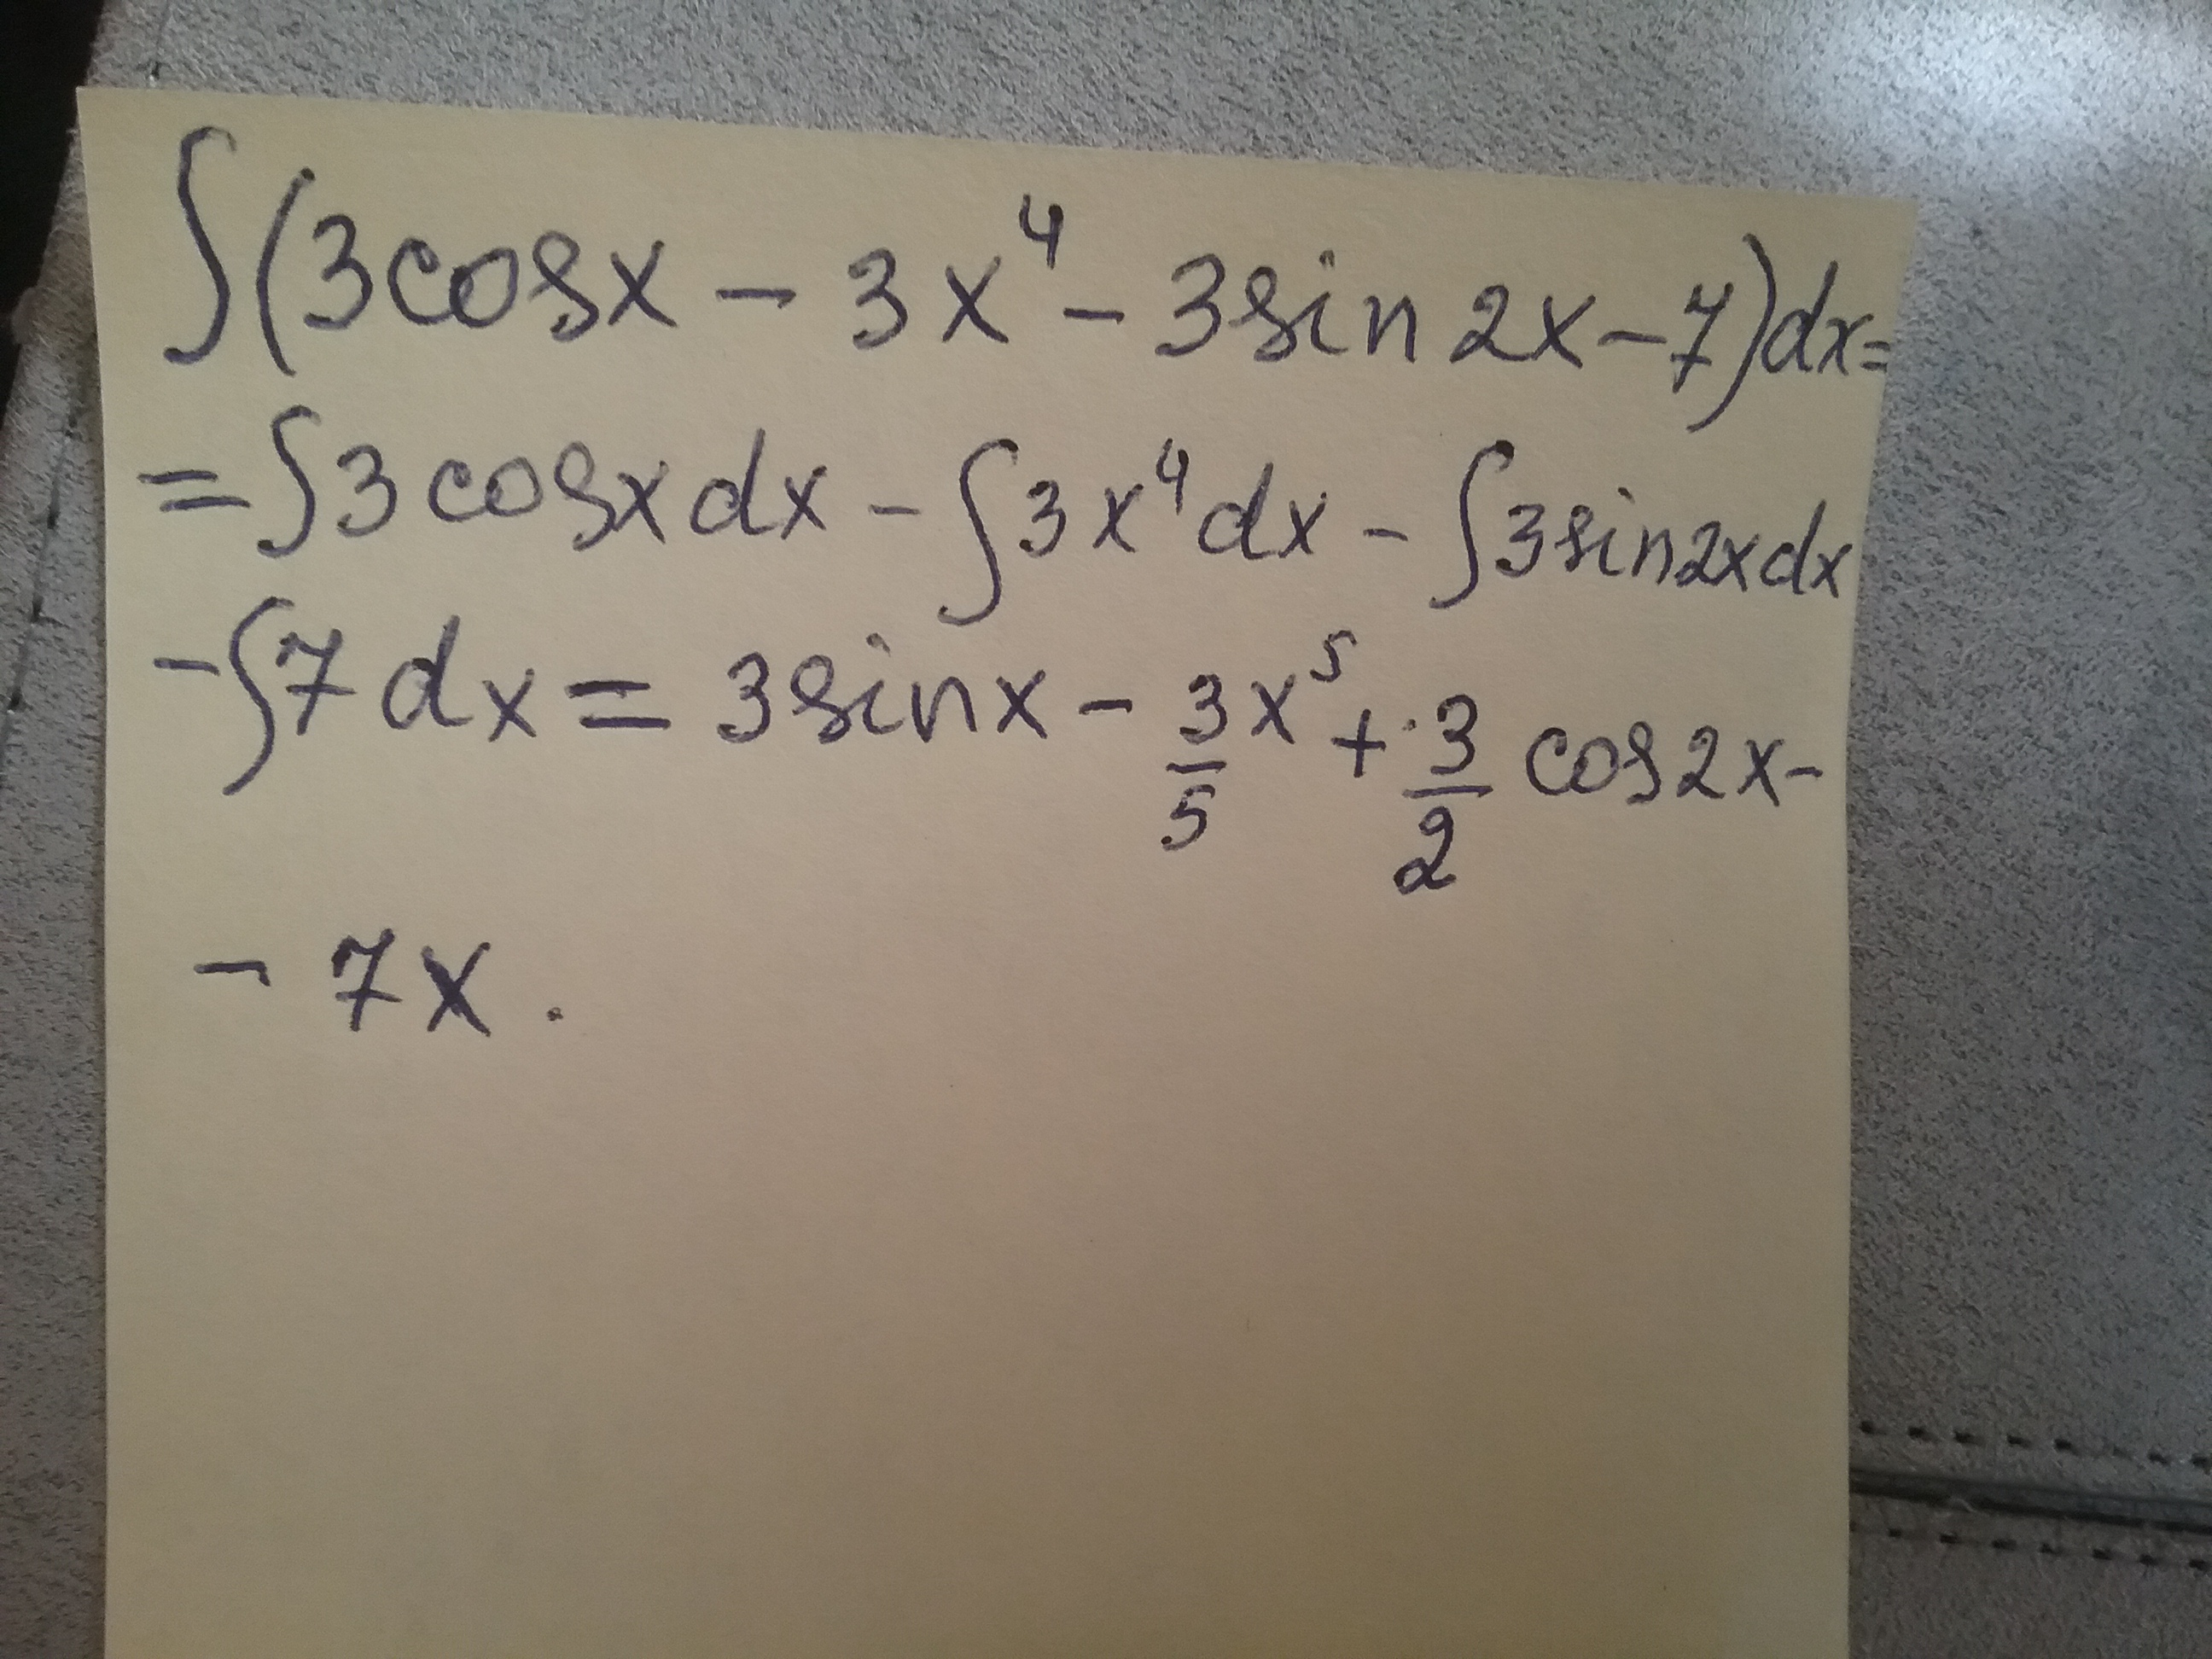 ∫(3cosx - 3x⁴ - 3sin2x - 7)dx=
= ∫3cosxdx - ∫3x⁴dx - ∫3sin2xdx
- ∫7dx = 3sinx - 3/5 x⁵ + 3/2 cos2x -
- 7x.